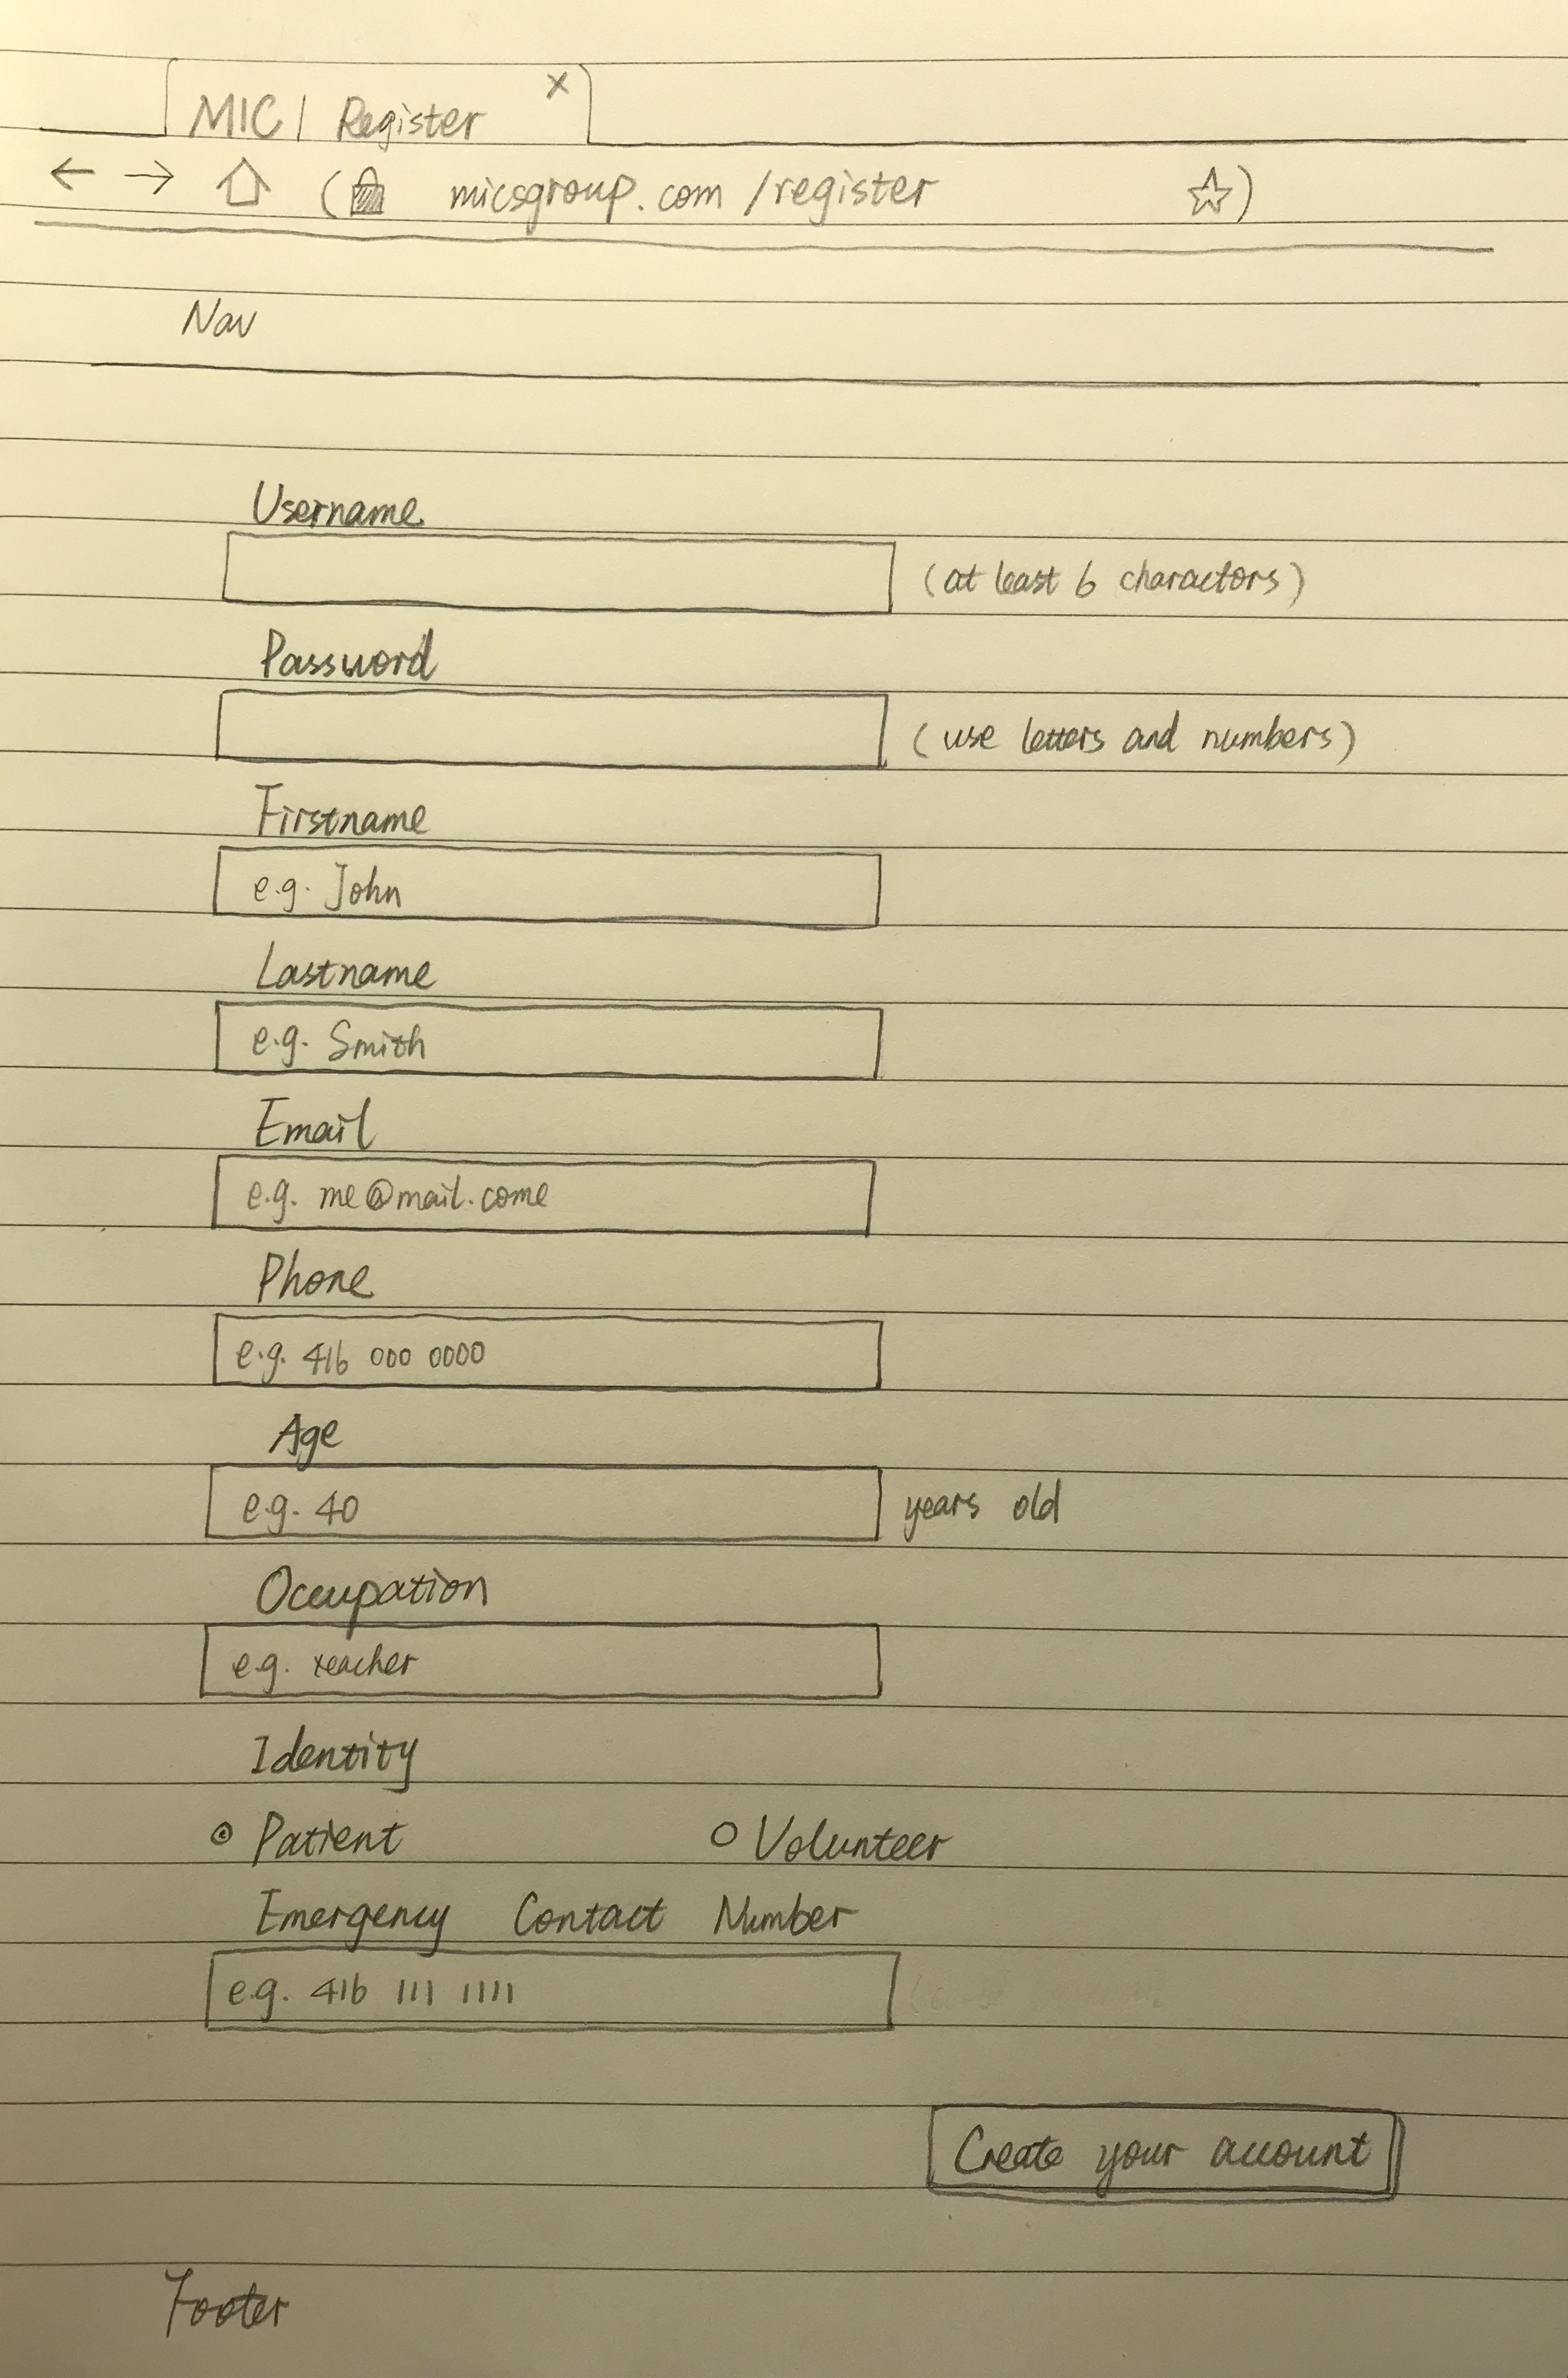 MIC | Register x
micsgroup.com /register
Nav
Username
(at least 6 charactors)
Password
(use letters and numbers)
Firstname
e.g. John
Lastname
e.g. Smith
Email
e.g. me@mail.come
Phone
e.g. 416 000 0000
Age
e.g. 40 years old
Occupation
e.g. teacher
Identity
Patient Volunteer
Emergency Contact Number
e.g. 416 111 1111
Create your account
Footer